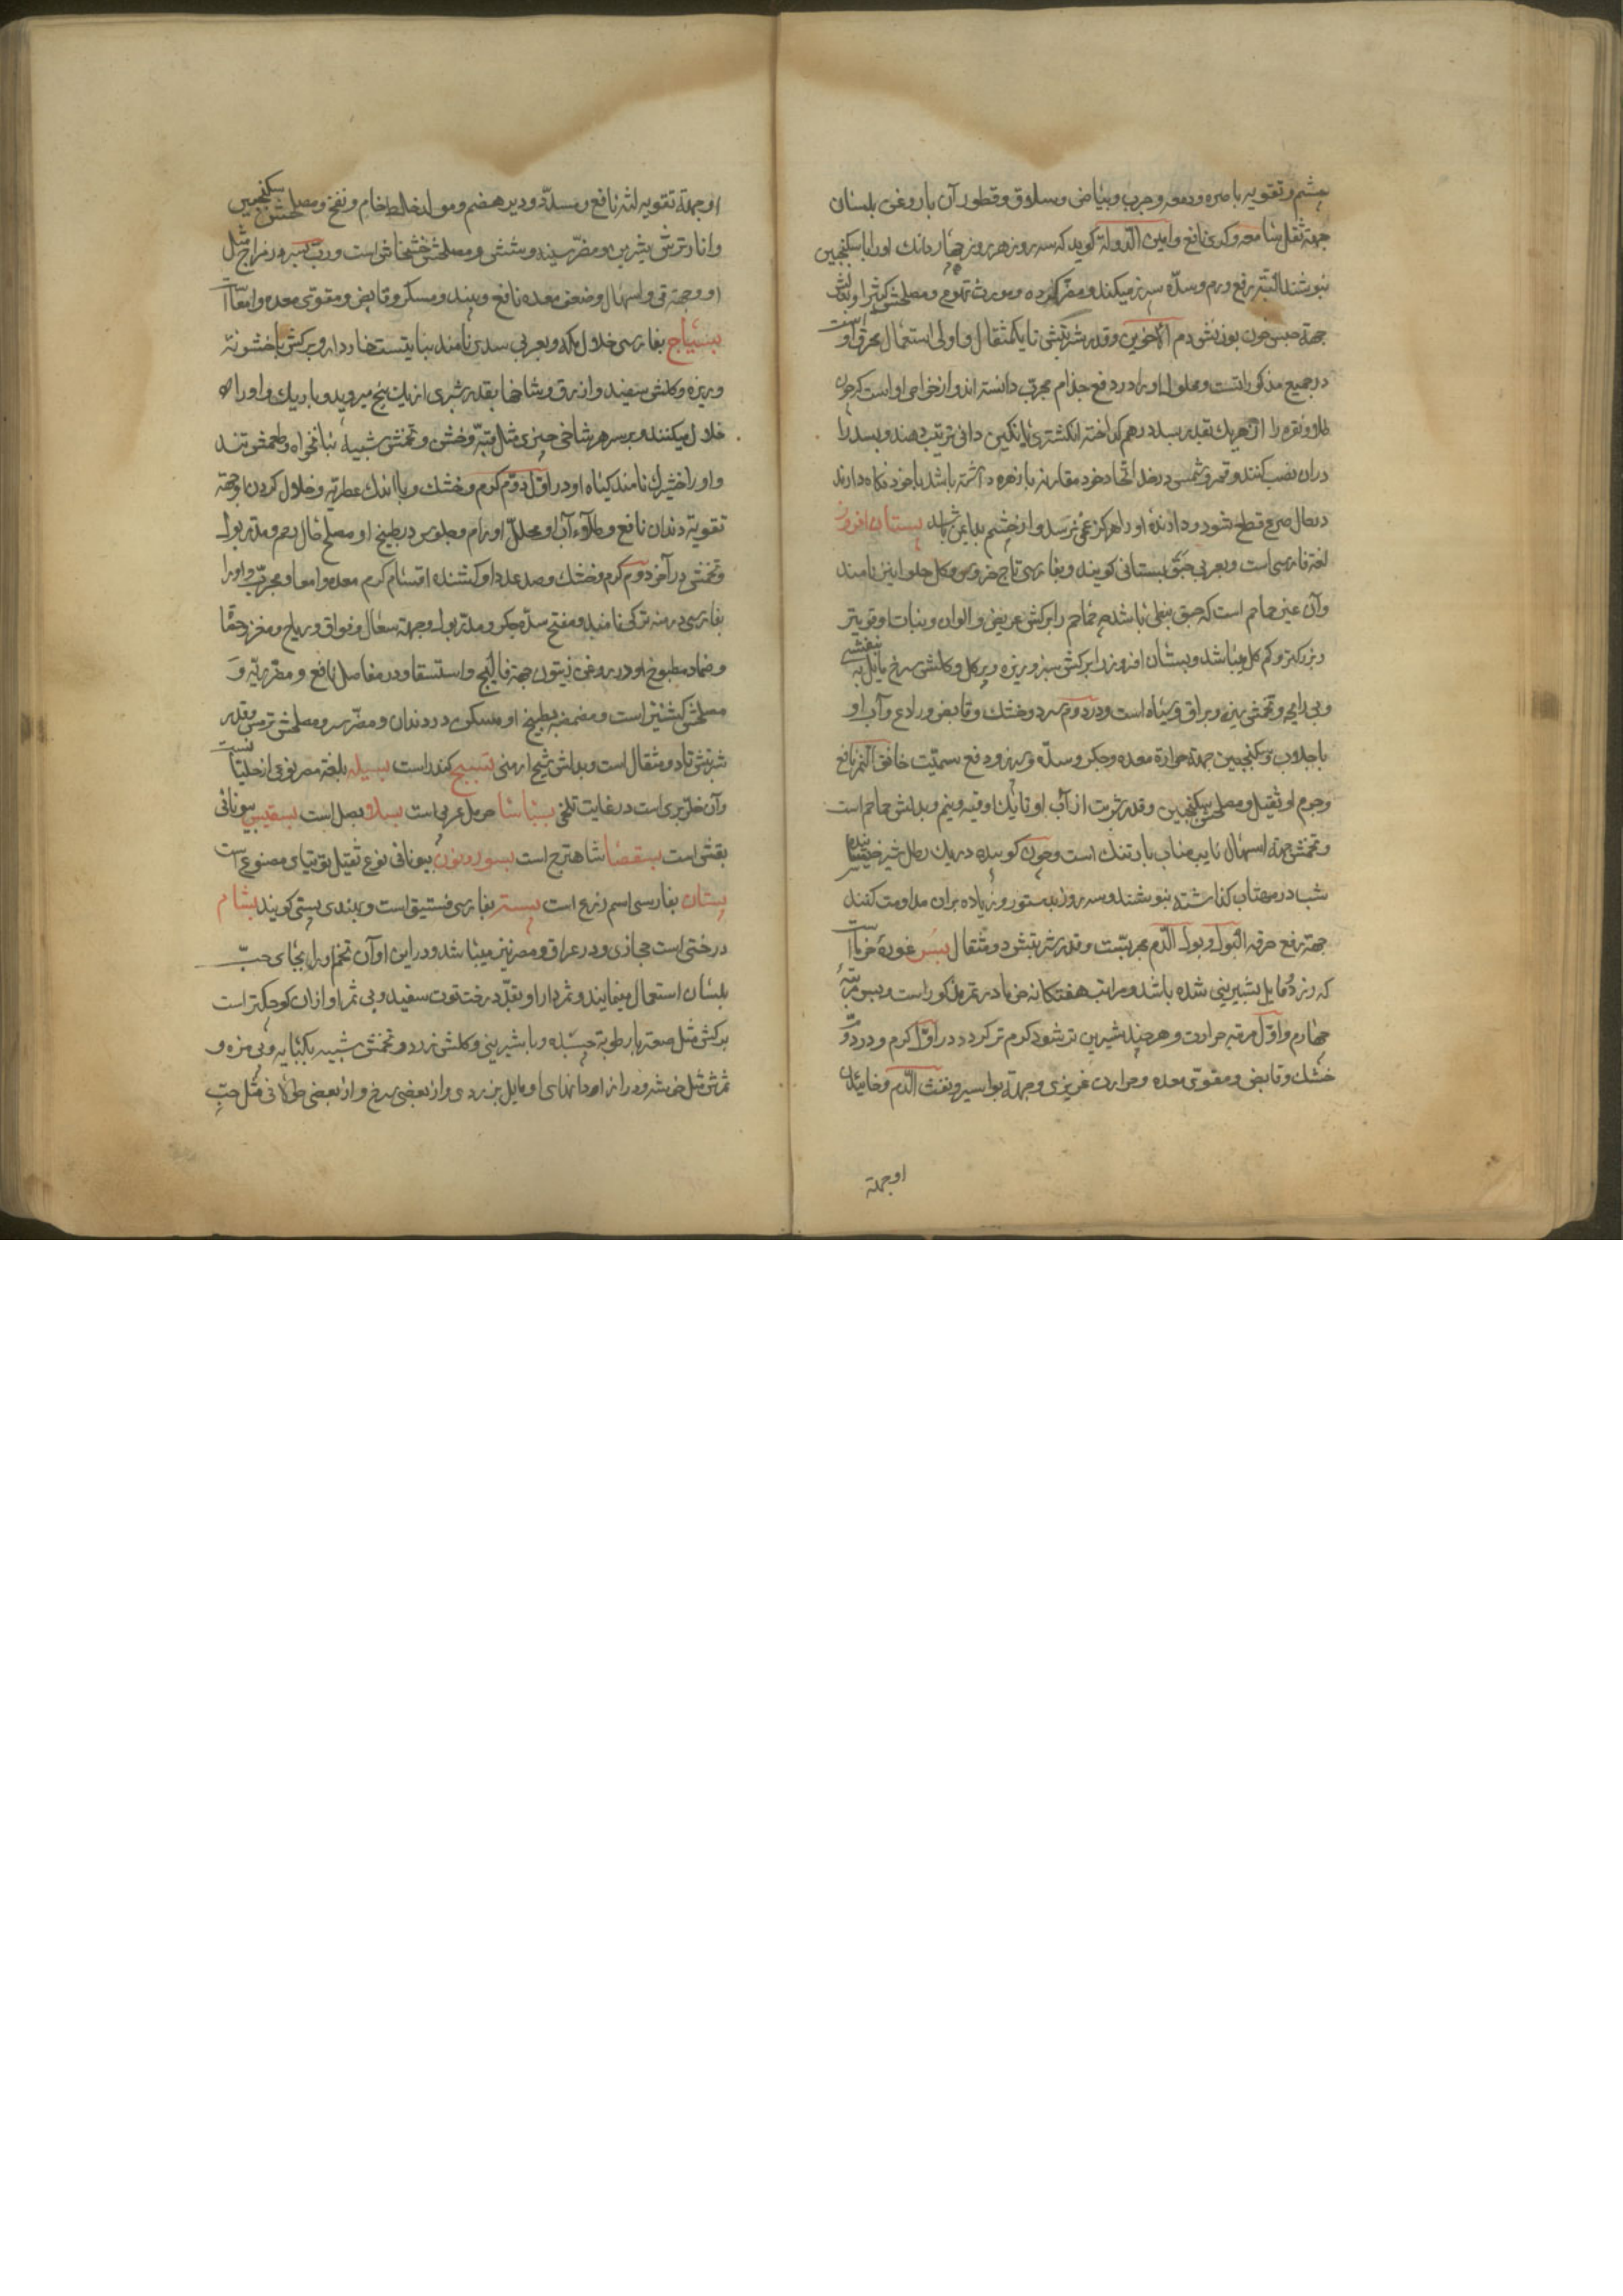 چشم و تقویه باصره و دمعه و جرب و بیاض و سلاق و قطور آن با روغن بلسان
جهة ثقل سامعه و کری نافع و امین الدوله کوید که سه روز هر روز چهار دانك او را با سکنجبین
بنوشند البته رفع ورم و سده سپرز میکند و مضر کرده و مورث تهوع و مصلحش کثیرا و بدلش
جهة حبس خون بوزنش دم الاخوین و قدر شربتش تا یکمثقال و اولی استعمال محرق او است
در جمیع مذکورات و محلول او را در رفع جذام مجرب دانسته اند و از خواص او است که چون
طلا و نقره را از هر یك بقدر سه درهم کداخته انکشتری یا نکین دانی ترتیب دهند و بسد را
در آن نصب کنند و قمر و شمس در حد اتحاد خود مقارنه با زهره داشته باشد با خود نکاه دارند
در حال صرع قطع شود و دارنده او را هرکز غمی نرسد و از چشم بد ایمن باشد بستان افروز
لغة فارسی است و بعربی حبق بستانی کویند و بفارسی تاج خروس و کل حلوا نیز نامند
و آن غیر حماحم است که حبق نبطی باشد چه حماحم را برکش عریض و الوان و نبات او قویتر
و بزرکتر و کم کل میباشد و بستان افروز را برکش سبز و ریزه و پر کل و کلش سرخ مایل به بنفشی
و بی رایحه و تخمش ریزه و براق و سیاه است و در دوم سرد و خشك و قابض و رادع و آب او
با جلاب و سکنجبین جهة حرارة معده و جکر و سده سپرز و دفع سمیت خانق النمر نافع
و جرم او ثقیل و مصلحش سکنجبین و قدر شربت از آب او تا یك اوقیه و نیم و بدلش حماحم است
و تخمش جهة اسهال نایب مناب بارتنك است و چون کوبیده در یك رطل شیر خیسانیده
شب در مهتاب کذارشته بنوشند و سه روز بدستور و زیاده بر آن مداومت کنند
جهة رفع حرقه البول و بول الدم مجربست و قدر شربتش دو مثقال بسر غوره خرما است
که زرد و مایل بشیرینی شده باشد و مراتب هفتکانه خرما در تمر مذکور است و بسر مرتبه
چهارم و اول مرتبه حرارت و هر چند شیرین تر شود کرم تر کردد در اول کرم و در دوم
خشك و قابض و مقوی معده و حرارت غریزی و جهة بواسیر و نفث الدم و خاییدن
او جهة
او جهة تقویه لثه نافع و مسدد و دیر هضم و مولد خلط خام و نفخ و مصلحش سکنجبین
و انار ترش شیرین و مضر سینه و شش و مصلحش خشخاش است و رب بسر در مزاج مثل
او و جهة قی و اسهال و ضعف معده نافع و بسد و مسکر و قابض و مقوی معده و امعا است
بستیاج بفارسی خلال مکه و بعربی سدی نامند نباتیست خاردار و برکش با خشونة
و ریزه و کلش سفید و ازرق و شاخها بقدر شبری از یك بیخ میروید و باریك و او را
خلال میکنند و بر سر هر شاخی چیزی مثل قبه و خشن و تخمش شبیه بنانخواه و طعمش تند
و او را خشیرك نامند کیاه او در اول دوم کرم و خشك و با اندك عطریه و خلال کردن او جهة
تقویة دندان نافع و طلاء آن او محلل اورام و جلوس در طبیخ او مصلح حال رحم و مدر بول
و تخمش در آخر دوم کرم و خشك و صد عدد او کشنده اقسام کرم معده و امعا و مجرب و او را
بفارسی درمنه ترکی نامند و مفتح سده جکر و مدر بول و جهة سعال و فواق و ریاح و مغز حقا
و ضماد مطبوخ او در روغن زیتون جهة فالج و استسقا و درد مفاصل نافع و مضر ریه و
مصلحش کشنیز است و مضمضه بطبیخ او مسکن درد دندان و مضر سر و مصلحش ترمس و قدر
شربتش تا دو مثقال است و بدلش شیح ارمنی بسبیج کندر است بسیله بلغة مصر نوعی از حلبان است
و آن خلر بری است در غایت تلخی بسباسا حرمل عربی است بسلا و بصل است بسقیس بیونانی
بقش است بسقضا شاهترج است بسوریون بیونانی نوع ثقیل توتیای مصنوع است
بستان بفارسی اسم زرع است بستر بفارسی فستیق است و بهندی پستی کویند بشام
درختی است حجازی و در عراق و مصر نیز میباشد و در این اوان تخم او را بجای حب
بلسان استعمال مینمایند و ثمردار او بقدر درخت توت سفید و بی ثمر او از ان کوچکتر است
برکش مثل صعتر با رطوبة چسبنده و با شیرینی و کلش زرد و تخمش شبیه بکبابه و بی مزه و
ثمرش مثل خوشه و دراز او دانهای او مایل بزرد و از بعضی سرخ و از بعضی طولانی مثل حب